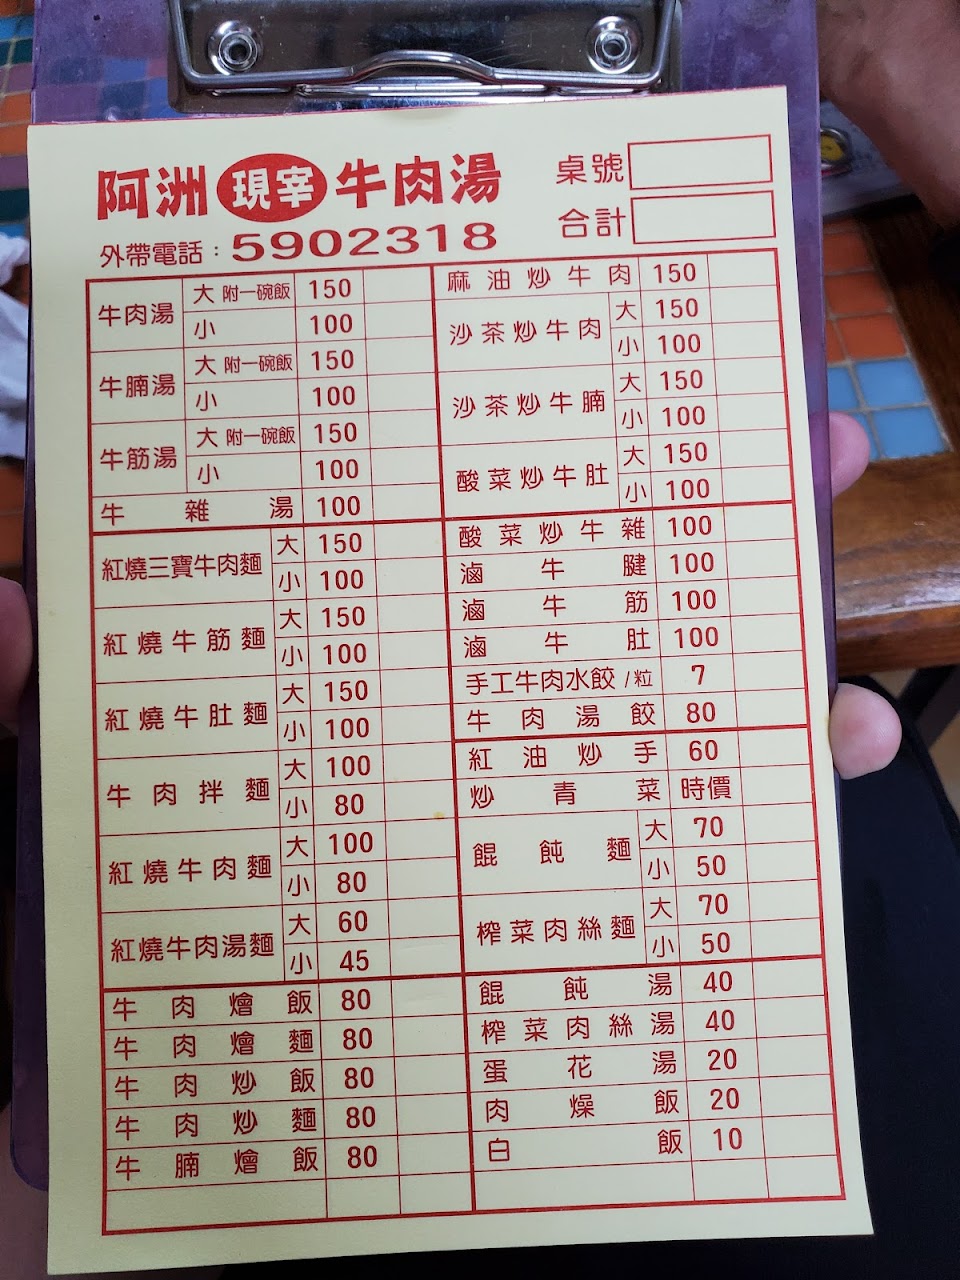 阿洲 現宰 牛肉湯
外帶電話：5902318
桌號
合計
牛肉湯 大 附一碗飯 150
小 100
牛腩湯 大 附一碗飯 150
小 100
牛筋湯 大 附一碗飯 150
小 100
牛雜湯 100
紅燒三寶牛肉麵 大 150
小 100
紅燒牛筋麵 大 150
小 100
紅燒牛肚麵 大 150
小 100
牛肉拌麵 大 100
小 80
紅燒牛肉麵 大 100
小 80
紅燒牛肉湯麵 大 60
小 45
牛肉燴飯 80
牛肉燴麵 80
牛肉炒飯 80
牛肉炒麵 80
牛腩燴飯 80
麻油炒牛肉 150
沙茶炒牛肉 大 150
小 100
沙茶炒牛腩 大 150
小 100
酸菜炒牛肚 大 150
小 100
酸菜炒牛雜 100
滷牛腱 100
滷牛筋 100
滷牛肚 100
手工牛肉水餃/粒 7
牛肉湯餃 80
紅油炒手 60
炒青菜 時價
餛飩麵 大 70
小 50
榨菜肉絲麵 大 70
小 50
餛飩湯 40
榨菜肉絲湯 40
蛋花湯 20
肉燥飯 20
白飯 10